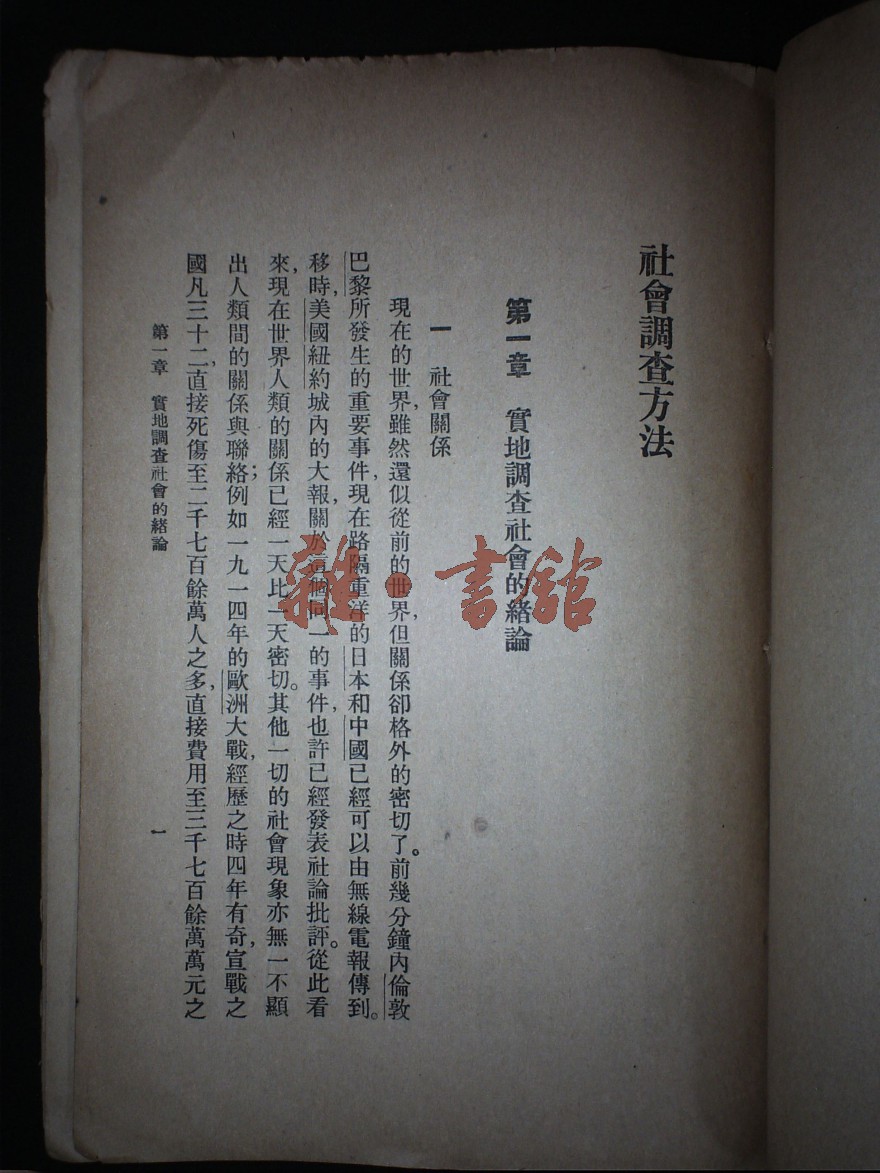 社會調查方法
第一章　實地調查社會的緒論
一　社會關係
現在的世界，雖然還似從前的世界，但關係卻格外的密切了。前幾分鐘內倫敦
巴黎所發生的重要事件，現在路隔重洋的日本和中國已經可以由無線電報傳到。
移時，美國紐約城內的大報，關於這個同一的事件，也許已經發表社論批評。從此看
來，現在世界人類的關係已經一天比一天密切。其他一切的社會現象亦無一不顯
出人類間的關係與聯絡；例如一九一四年的歐洲大戰，經歷之時四年有奇，宣戰之
國凡三十二，直接死傷至二千七百餘萬人之多，直接費用至三千七百餘萬萬元之
第一章　實地調查社會的緒論
一
雜·書館